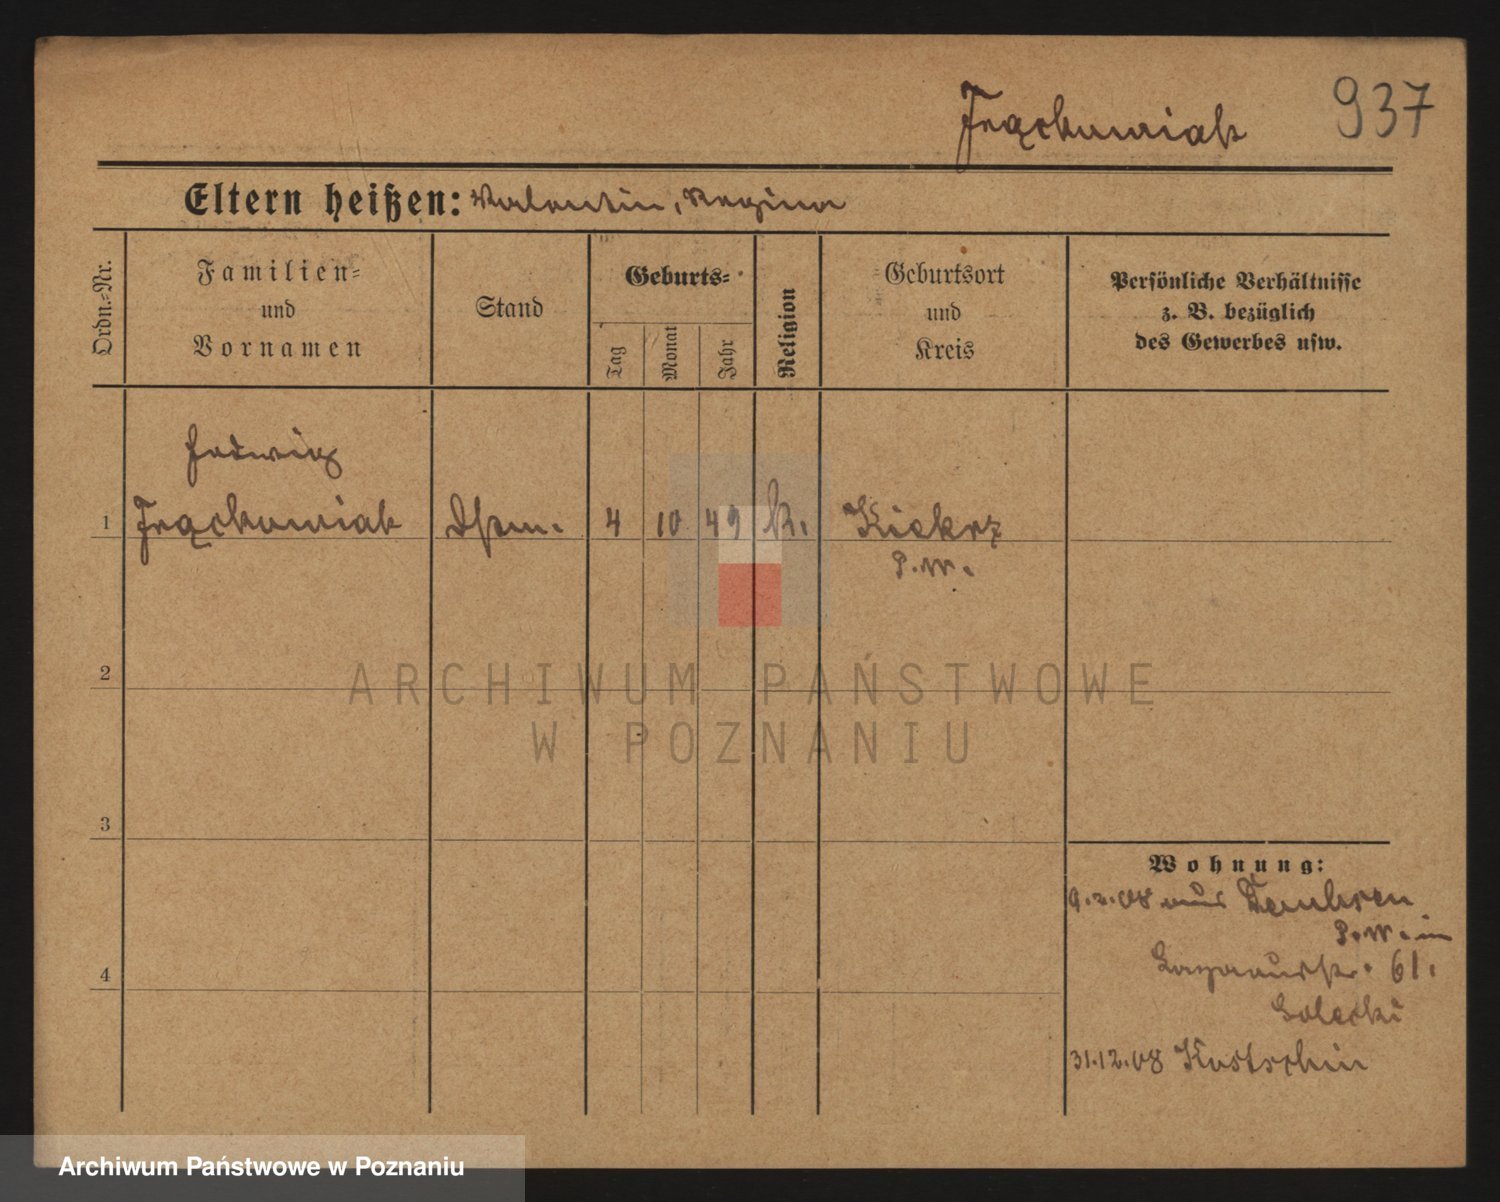 Frąckowiak 937
Eltern heißen: Valentin, Regina
Ordn.-Nr.
Familien-
und
Vornamen
Stand
Geburts-
Tag
Monat
Jahr
Religion
Geburtsort
und
Kreis
Persönliche Verhältnisse
z. B. bezüglich
des Gewerbes usw.
Hedwig
1 Frąckowiak 4 10 49 k. Kiekrz
P.W.
ARCHIWUM PAŃSTWOWE
W POZNANIU
2
3
4
Wohnung:
9.2.08 aus Dembsen
P.W. in
61.
31.12.08 Kostschin
Archiwum Państwowe w Poznaniu